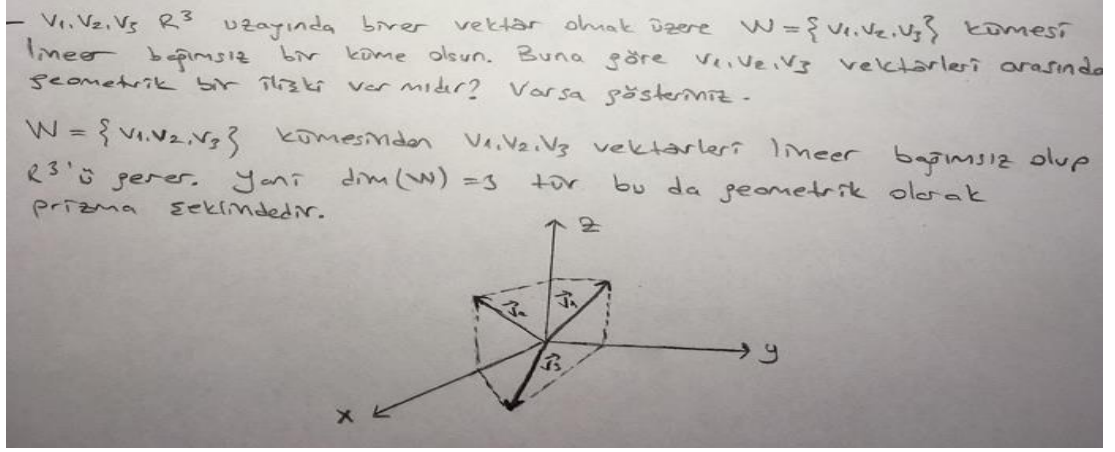 - V₁, V₂, V₃ R³ uzayında birer vektör olmak üzere W = {V₁, V₂, V₃} kümesi
lineer bağımsız bir küme olsun. Buna göre V₁, V₂, V₃ vektörleri arasında
geometrik bir ilişki var mıdır? Varsa gösteriniz.
W = {V₁, V₂, V₃} kümesinden V₁, V₂, V₃ vektörleri lineer bağımsız olup
R³'ü gerer. Yani dim(W) = 3 tür bu da geometrik olarak
prizma şeklindedir.
z
y
x